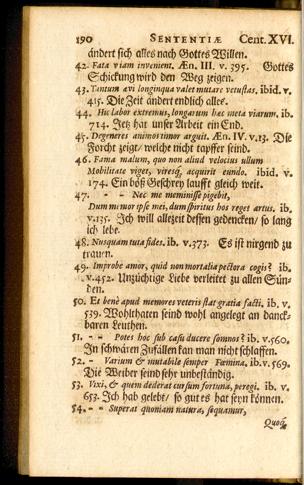 190 SENTENTIÆ Cent. XVI.
ändert sich alles nach Gottes Willen.
42. Fata viam invenient. Æn. III. v. 395. Gottes
Schickung wird den Weg zeigen.
43. Tantum ævi longinqua valet mutare vetustas. ibid. v.
415. Die Zeit ändert endlich alles.
44. Hic labor extremus, longarum hæc meta viarum. ib.
714. Jetz hat unser Arbeit ein End.
45. Degeneres animos timor arguit. Æn. IV. v. 13. Die
Forcht zeigt / welche nicht tapffer seind.
46. Fama malum, quo non aliud velocius ullum
Mobilitate viget, viresq; acquirit eundo. ibid. v.
174. Ein böß Geschrey laufft gleich weit.
47. - - Nec me meminisse pigebit,
Dum memor ipse mei, dum spiritus hos reget artus. ib.
v. 135. Ich will allezeit dessen gedencken / so lang
ich lebe.
48. Nusquam tuta fides. ib. v. 373. Es ist nirgend zu
trauen.
49. Improbe amor, quid non mortalia pectora cogis? ib.
v. 452. Unzüchtige Liebe verleitet zu allen Sün-
den.
50. Et benè apud memores veteris stat gratia facti, ib. v.
539. Wohlthaten seind wohl angelegt an danck-
baren Leuthen.
51. - - Potes hoc sub casu ducere somnos? ib. v. 560.
In schwären Zufällen kan man nicht schlaffen.
52. - Varium & mutabile semper Fœmina. ib. v. 569.
Die Weiber seind sehr unbeständig.
53. Vixi, & quem dederat cursum fortuna, peregi. ib. v.
653. Ich hab gelebt / so gut es hat seyn können.
54. - - Superat quoniam natura, sequamur,
Quoq́;